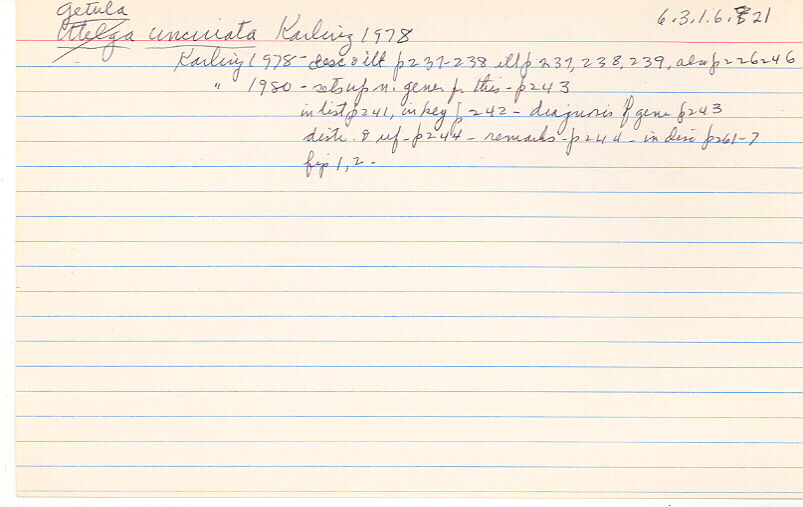 Getula 6.3.1.6.21
Utelga uncinata Karling 1978
Karling 1978 - desc & ill p 237-238 ill p 237, 238, 239, also p 226 246
" 1980 - sets up n. genus for this - p 243
in list p 241, in key p 242 - diagnosis of genus p 243
distr. & ref - p 244 - remarks - p 244 - in disc p 261-7
fig 1, 2 -